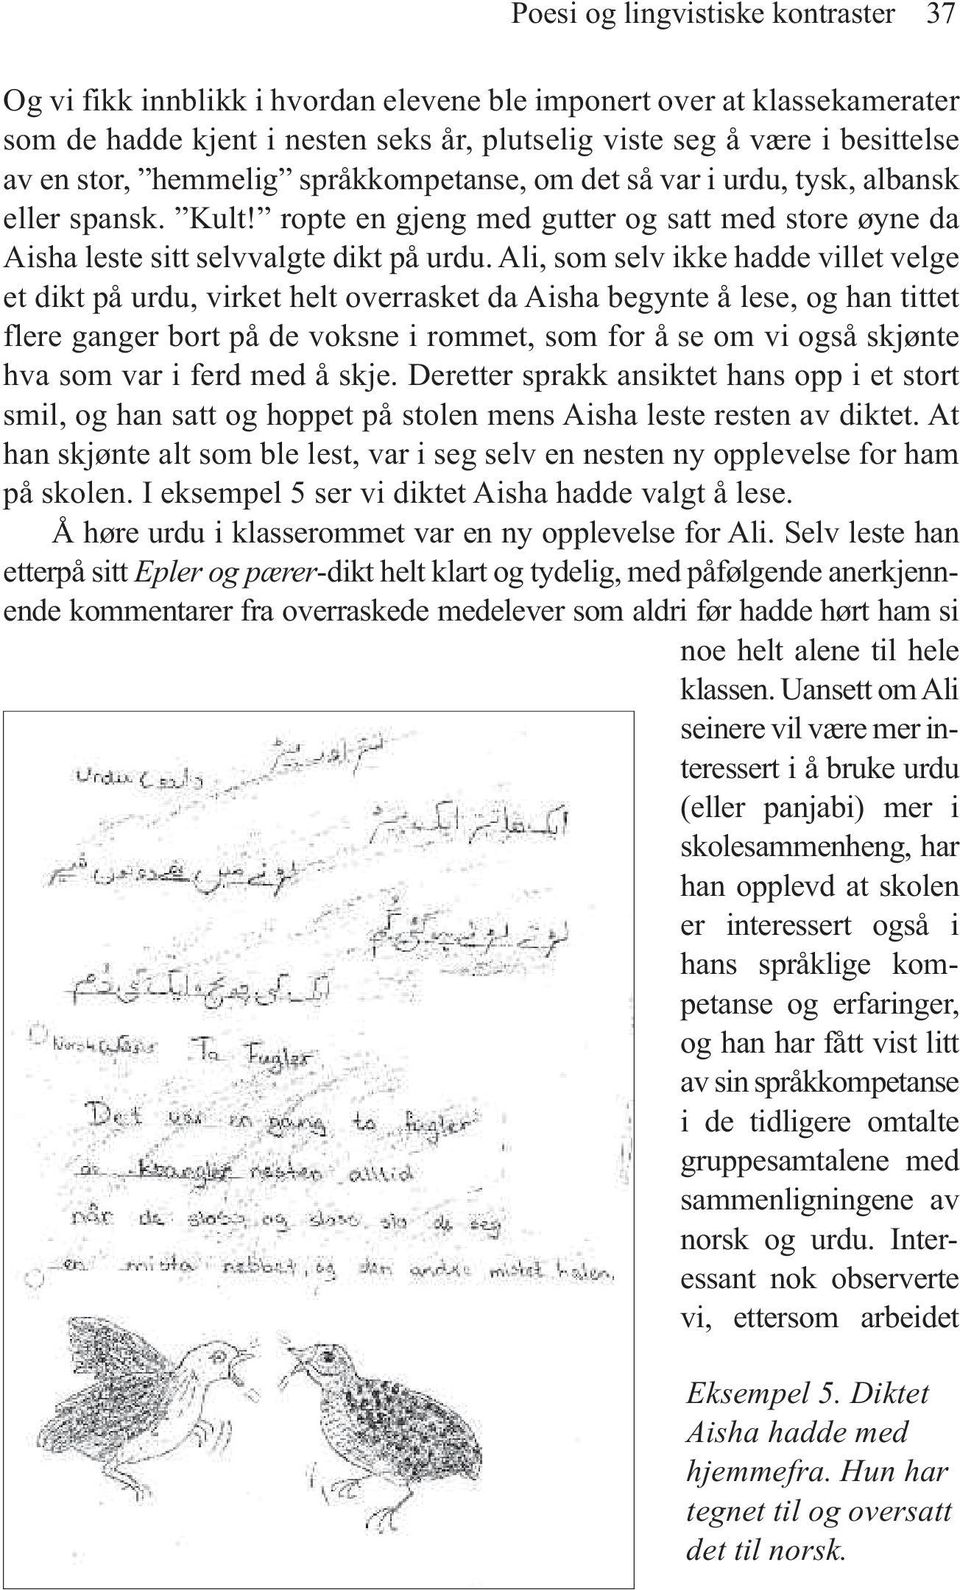 Poesi og lingvistiske kontraster 37
Og vi fikk innblikk i hvordan elevene ble imponert over at klassekamerater
som de hadde kjent i nesten seks år, plutselig viste seg å være i besittelse
av en stor, ”hemmelig” språkkompetanse, om det så var i urdu, tysk, albansk
eller spansk. ”Kult!” ropte en gjeng med gutter og satt med store øyne da
Aisha leste sitt selvvalgte dikt på urdu. Ali, som selv ikke hadde villet velge
et dikt på urdu, virket helt overrasket da Aisha begynte å lese, og han tittet
flere ganger bort på de voksne i rommet, som for å se om vi også skjønte
hva som var i ferd med å skje. Deretter sprakk ansiktet hans opp i et stort
smil, og han satt og hoppet på stolen mens Aisha leste resten av diktet. At
han skjønte alt som ble lest, var i seg selv en nesten ny opplevelse for ham
på skolen. I eksempel 5 ser vi diktet Aisha hadde valgt å lese.
Å høre urdu i klasserommet var en ny opplevelse for Ali. Selv leste han
etterpå sitt Epler og pærer-dikt helt klart og tydelig, med påfølgende anerkjenn-
ende kommentarer fra overraskede medelever som aldri før hadde hørt ham si
noe helt alene til hele
klassen. Uansett om Ali
seinere vil være mer in-
teressert i å bruke urdu
(eller panjabi) mer i
skolesammenheng, har
han opplevd at skolen
er interessert også i
hans språklige kom-
petanse og erfaringer,
og han har fått vist litt
av sin språkkompetanse
i de tidligere omtalte
gruppesamtalene med
sammenligningene av
norsk og urdu. Inter-
essant nok observerte
vi, ettersom arbeidet
Urdu (اردو)
لڑتے لڑتے
ایک گم
Norsk
To Fugler
Det var en gang to fugler
de krangler nesten alltid
når de sloss og sloss, sio de seg
en mista nebbet, og den andre mistet halen.
Eksempel 5. Diktet
Aisha hadde med
hjemmefra. Hun har
tegnet til og oversatt
det til norsk.